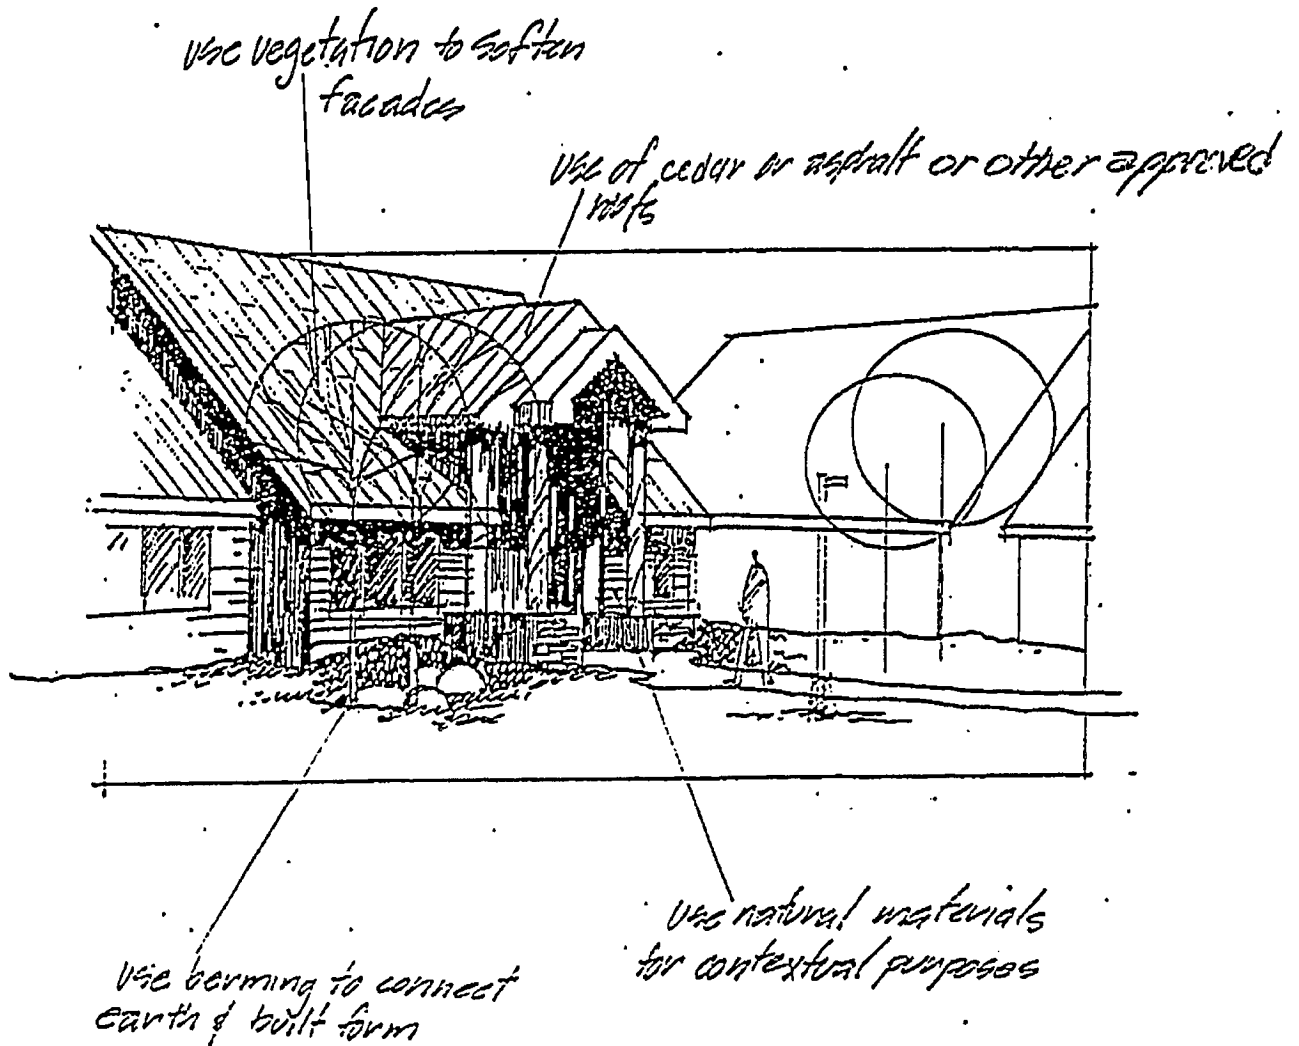 use vegetation to soften
facades
use of cedar or asphalt or other approved
roofs
use natural materials
for contextual purposes
use berming to connect
earth & built form